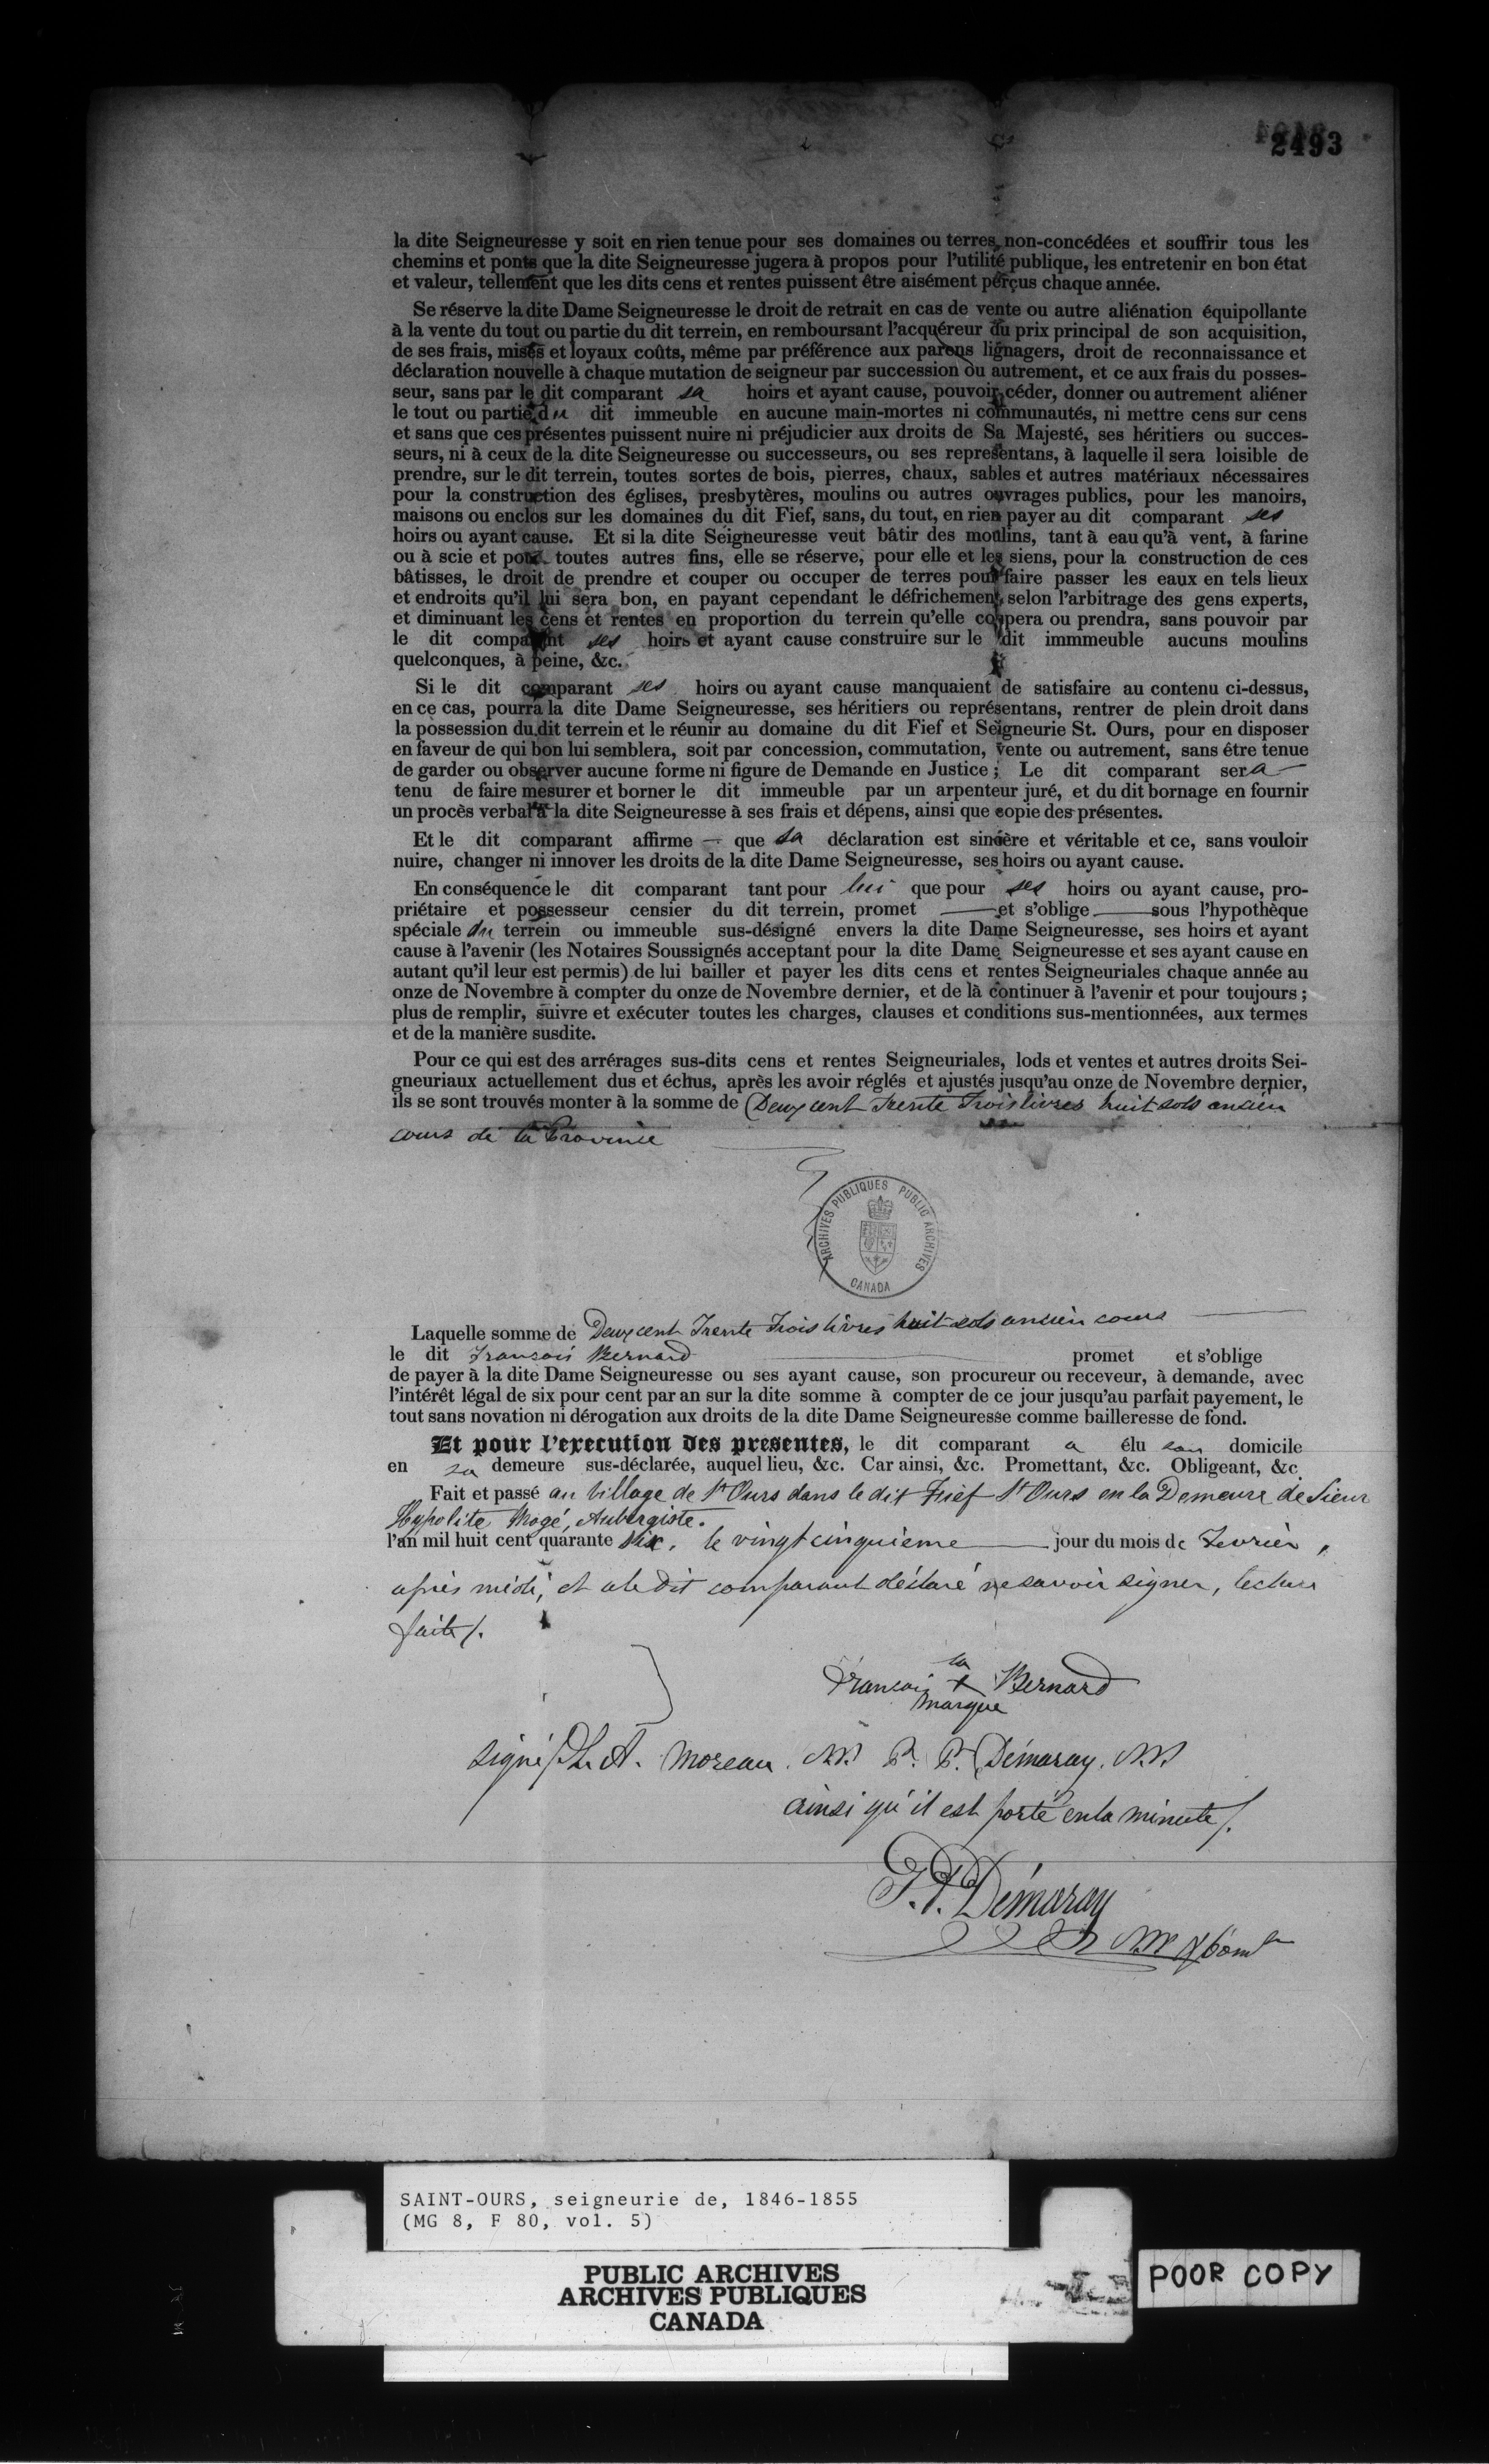 2493
la dite Seigneuresse y soit en rien tenue pour ses domaines ou terres non-concédées et souffrir tous les
chemins et ponts que la dite Seigneuresse jugera à propos pour l'utilité publique, les entretenir en bon état
et valeur, tellement que les dits cens et rentes puissent être aisément perçus chaque année.
Se réserve la dite Dame Seigneuresse le droit de retrait en cas de vente ou autre aliénation équipollante
à la vente du tout ou partie du dit terrein, en remboursant l'acquéreur du prix principal de son acquisition,
de ses frais, mises et loyaux coûts, même par préférence aux parens lignagers, droit de reconnaissance et
déclaration nouvelle à chaque mutation de seigneur par succession ou autrement, et ce aux frais du posses-
seur, sans par le dit comparant sa hoirs et ayant cause, pouvoir céder, donner ou autrement aliéner
le tout ou partie du dit immeuble en aucune main-mortes ni communautés, ni mettre cens sur cens
et sans que ces présentes puissent nuire ni préjudicier aux droits de Sa Majesté, ses héritiers ou succes-
seurs, ni à ceux de la dite Seigneuresse ou successeurs, ou ses representans, à laquelle il sera loisible de
prendre, sur le dit terrein, toutes sortes de bois, pierres, chaux, sables et autres matériaux nécessaires
pour la construction des églises, presbytères, moulins ou autres ouvrages publics, pour les manoirs,
maisons ou enclos sur les domaines du dit Fief, sans, du tout, en rien payer au dit comparant ses
hoirs ou ayant cause. Et si la dite Seigneuresse veut bâtir des moulins, tant à eau qu'à vent, à farine
ou à scie et pour toutes autres fins, elle se réserve, pour elle et les siens, pour la construction de ces
bâtisses, le droit de prendre et couper ou occuper de terres pour faire passer les eaux en tels lieux
et endroits qu'il lui sera bon, en payant cependant le défrichement, selon l'arbitrage des gens experts,
et diminuant les cens et rentes en proportion du terrein qu'elle coupera ou prendra, sans pouvoir par
le dit comparant ses hoirs et ayant cause construire sur le dit immmeuble aucuns moulins
quelconques, à peine, &c.
Si le dit comparant ses hoirs ou ayant cause manquaient de satisfaire au contenu ci-dessus,
en ce cas, pourra la dite Dame Seigneuresse, ses héritiers ou représentans, rentrer de plein droit dans
la possession du dit terrein et le réunir au domaine du dit Fief et Seigneurie St. Ours, pour en disposer
en faveur de qui bon lui semblera, soit par concession, commutation, vente ou autrement, sans être tenue
de garder ou observer aucune forme ni figure de Demande en Justice; Le dit comparant sera
tenu de faire mesurer et borner le dit immeuble par un arpenteur juré, et du dit bornage en fournir
un procès verbal à la dite Seigneuresse à ses frais et dépens, ainsi que copie des présentes.
Et le dit comparant affirme — que sa déclaration est sincère et véritable et ce, sans vouloir
nuire, changer ni innover les droits de la dite Dame Seigneuresse, ses hoirs ou ayant cause.
En conséquence le dit comparant tant pour lui que pour ses hoirs ou ayant cause, pro-
priétaire et possesseur censier du dit terrein, promet — et s'oblige — sous l'hypothèque
spéciale du terrein ou immeuble sus-désigné envers la dite Dame Seigneuresse, ses hoirs et ayant
cause à l'avenir (les Notaires Soussignés acceptant pour la dite Dame Seigneuresse et ses ayant cause en
autant qu'il leur est permis) de lui bailler et payer les dits cens et rentes Seigneuriales chaque année au
onze de Novembre à compter du onze de Novembre dernier, et de là continuer à l'avenir et pour toujours;
plus de remplir, suivre et exécuter toutes les charges, clauses et conditions sus-mentionnées, aux termes
et de la manière susdite.
Pour ce qui est des arrérages sus-dits cens et rentes Seigneuriales, lods et ventes et autres droits Sei-
gneuriaux actuellement dus et échus, après les avoir réglés et ajustés jusqu'au onze de Novembre dernier,
ils se sont trouvés monter à la somme de Deux cent Trente Trois livres huit sols ancien
cours de la Province
ARCHIVES PUBLIQUES PUBLIC ARCHIVES
CANADA
Laquelle somme de Deux cent Trente Trois livres huit sols ancien cours
le dit François Bernard promet et s'oblige
de payer à la dite Dame Seigneuresse ou ses ayant cause, son procureur ou receveur, à demande, avec
l'intérêt légal de six pour cent par an sur la dite somme à compter de ce jour jusqu'au parfait payement, le
tout sans novation ni dérogation aux droits de la dite Dame Seigneuresse comme bailleresse de fond.
Et pour l'execution des presentes, le dit comparant a élu son domicile
en sa demeure sus-déclarée, auquel lieu, &c. Car ainsi, &c. Promettant, &c. Obligeant, &c
Fait et passé au Village de St Ours dans le dit Fief St Ours en la Demeure de Sieur
Hypolite Mogé, Aubergiste.
l'an mil huit cent quarante six, le vingt cinquieme — jour du mois de Fevrier,
après midi, et a le dit comparant déclaré ne savoir signer, lecture
faite/.
sa
François + Bernard
marque
signé/ L. A. Moreau. N.P. P. P. Démaray. N.P.
ainsi qu'il est porté en la minute/.
P. P. Démaray
N.P.
SAINT-OURS, seigneurie de, 1846-1855
(MG 8, F 80, vol. 5)
PUBLIC ARCHIVES
ARCHIVES PUBLIQUES
CANADA
POOR COPY